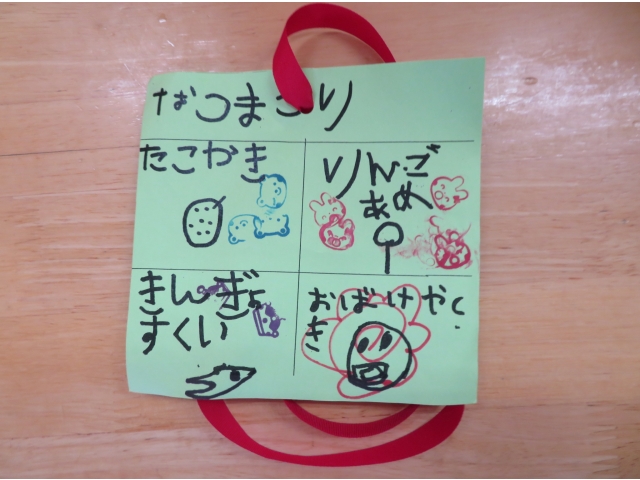 なつまつり
たこやき
りんご
あめ
きんぎょ
すくい
おばけやし
き